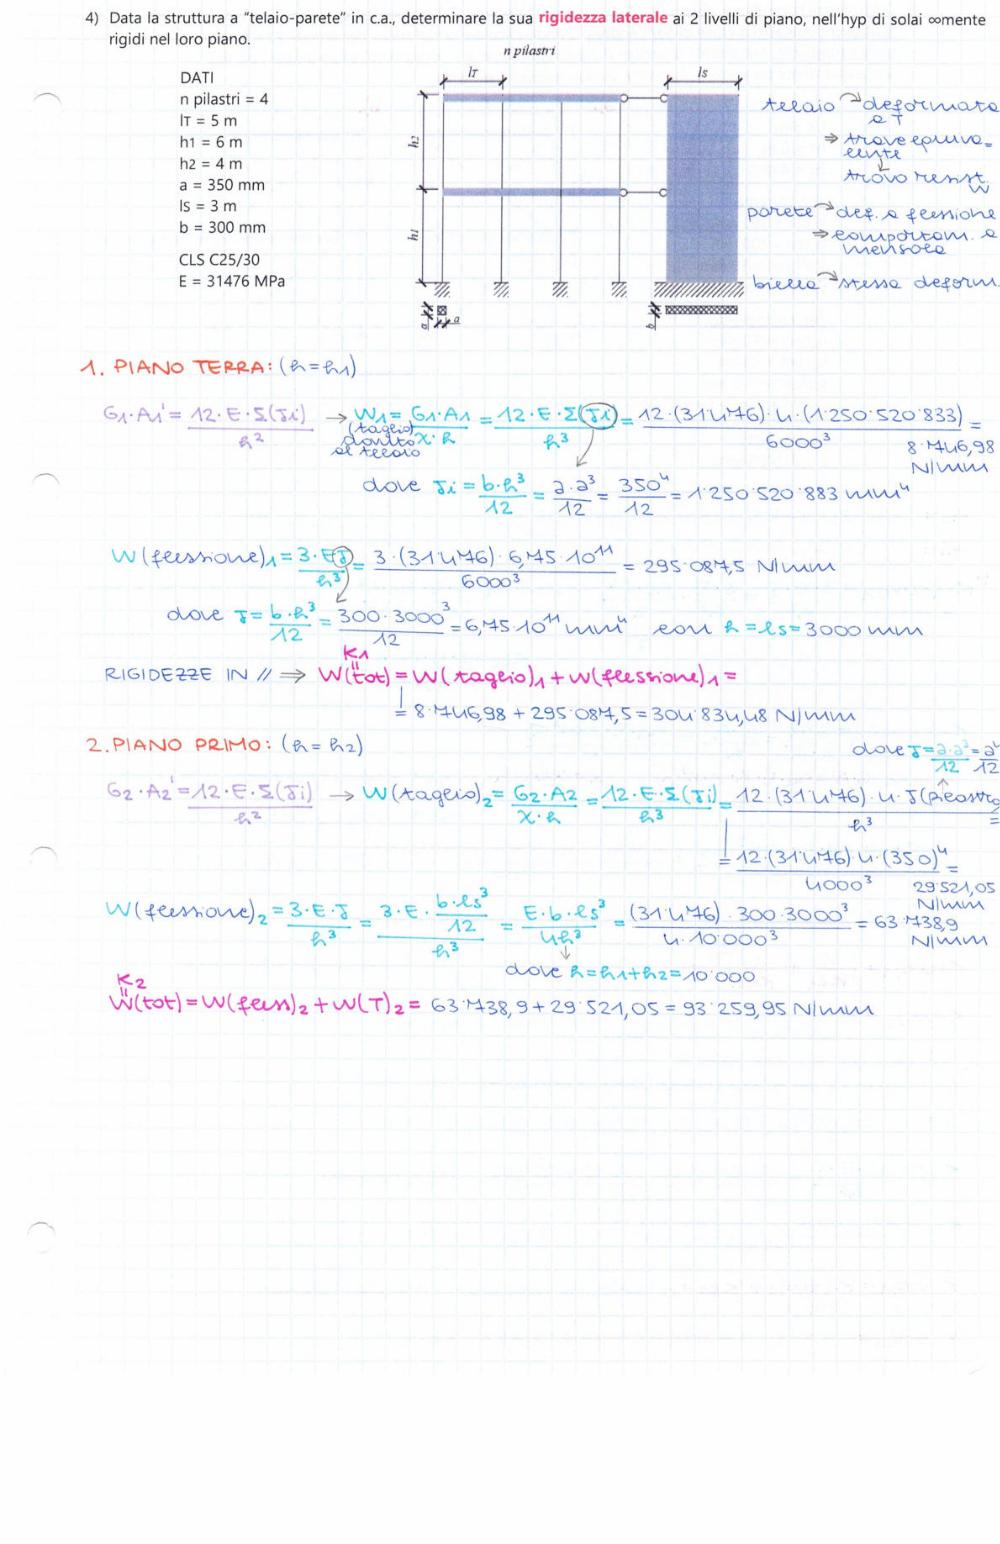 4) Data la struttura a "telaio-parete" in c.a., determinare la sua rigidezza laterale ai 2 livelli di piano, nell'hyp di solai ∞mente
rigidi nel loro piano.
n pilastri
DATI
n pilastri = 4
lT = 5 m
h1 = 6 m
h2 = 4 m
a = 350 mm
ls = 3 m
b = 300 mm
CLS C25/30
E = 31476 MPa
lT
ls
h2
h1
a
a
b
telaio → deformata
a T
⇒ trave equiva-
lente
↓
trovo resist.
W
parete → def. a flessione
⇒ comportam. a
mensola
biella → stessa deform.
1. PIANO TERRA: (h=h1)
G1·A1' = 12·E·Σ(Ji) / h² → W1 = G1·A1 / χ·h = 12·E·Σ(Ji) / h³ = 12·(31'476)·4·(1'250'520'833) / 6000³ = 8'746,98 N/mm
(taglio)
dovuto
al telaio
dove Ji = b·h³ / 12 = a·a³ / 12 = 350⁴ / 12 = 1'250'520'883 mm⁴
W(flessione)1 = 3·EJ / h³ = 3·(31'476)·6,75·10¹¹ / 6000³ = 295'087,5 N/mm
dove J = b·h³ / 12 = 300·3000³ / 12 = 6,75·10¹¹ mm⁴ con h=ls=3000 mm
K1
"
RIGIDEZZE IN // ⇒ W(tot) = W(taglio)1 + W(flessione)1 =
= 8'746,98 + 295'087,5 = 304'834,48 N/mm
2. PIANO PRIMO: (h=h2)
dove J = a·a³ / 12 = a⁴ / 12
G2·A2' = 12·E·Σ(Ji) / h² → W(taglio)2 = G2·A2 / χ·h = 12·E·Σ(Ji) / h³ = 12·(31'476)·4·J(pilastro / h³ =
= 12·(31'476)·4·(350)⁴ / 4000³ = 29'521,05 N/mm
W(flessione)2 = 3·E·J / h³ = 3·E·b·ls³ / 12 / h³ = E·b·ls³ / 4h³ = (31'476)·300·3000³ / 4·10'000³ = 63'738,9 N/mm
dove h=h1+h2=10'000
K2
"
W(tot) = W(fless)2 + W(T)2 = 63'738,9 + 29'521,05 = 93'259,95 N/mm